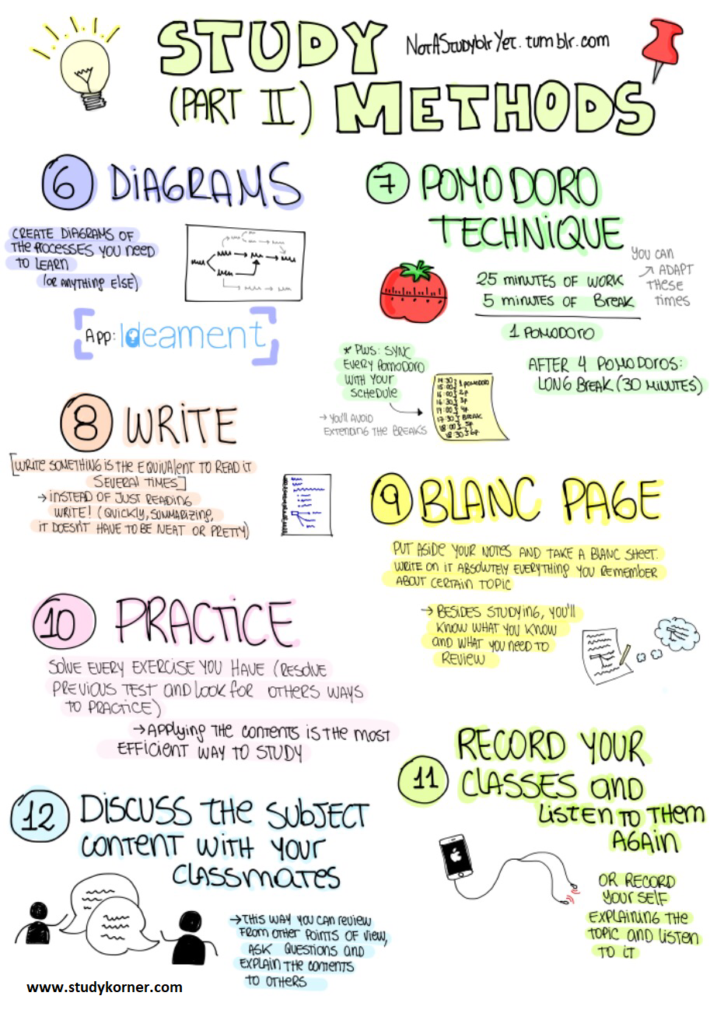 STUDY
NotAStudyblrYet.tumblr.com
(PART II) METHODS
6 DIAGRAMS
CREATE DIAGRAMS OF
THE PROCESSES YOU NEED
TO LEARN
(OR ANYTHING ELSE)
App: Ideament
7 POMODORO
TECHNIQUE
25 MINUTES OF WORK
5 MINUTES OF BREAK
1 POMODORO
YOU CAN
→ ADAPT
THESE
TIMES
AFTER 4 POMODOROS:
LONG BREAK (30 MINUTES)
* PLUS: SYNC
EVERY POMODORO
WITH YOUR
SCHEDULE
→ YOU'LL AVOID
EXTENDING THE BREAKS
8 WRITE
[WRITE SOMETHING IS THE EQUIVALENT TO READ IT
SEVERAL TIMES]
→ INSTEAD OF JUST READING
WRITE! (QUICKLY, SUMMARIZING,
IT DOESN'T HAVE TO BE NEAT OR PRETTY)
9 BLANC PAGE
PUT ASIDE YOUR NOTES AND TAKE A BLANC SHEET.
WRITE ON IT ABSOLUTELY EVERYTHING YOU REMEMBER
ABOUT CERTAIN TOPIC
→ BESIDES STUDYING, YOU'LL
KNOW WHAT YOU KNOW
AND WHAT YOU NEED TO
REVIEW
10 PRACTICE
SOLVE EVERY EXERCISE YOU HAVE (RESOLVE
PREVIOUS TEST AND LOOK FOR OTHERS WAYS
TO PRACTICE)
→ APPLYING THE CONTENTS IS THE MOST
EFFICIENT WAY TO STUDY
11 RECORD YOUR
CLASSES AND
LISTEN TO THEM
AGAIN
OR RECORD
YOUR SELF
EXPLAINING THE
TOPIC AND LISTEN
TO IT
12 DISCUSS THE SUBJECT
CONTENT WITH YOUR
CLASSMATES
→ THIS WAY YOU CAN REVIEW
FROM OTHER POINTS OF VIEW,
ASK QUESTIONS AND
EXPLAIN THE CONTENTS
TO OTHERS
www.studykorner.com